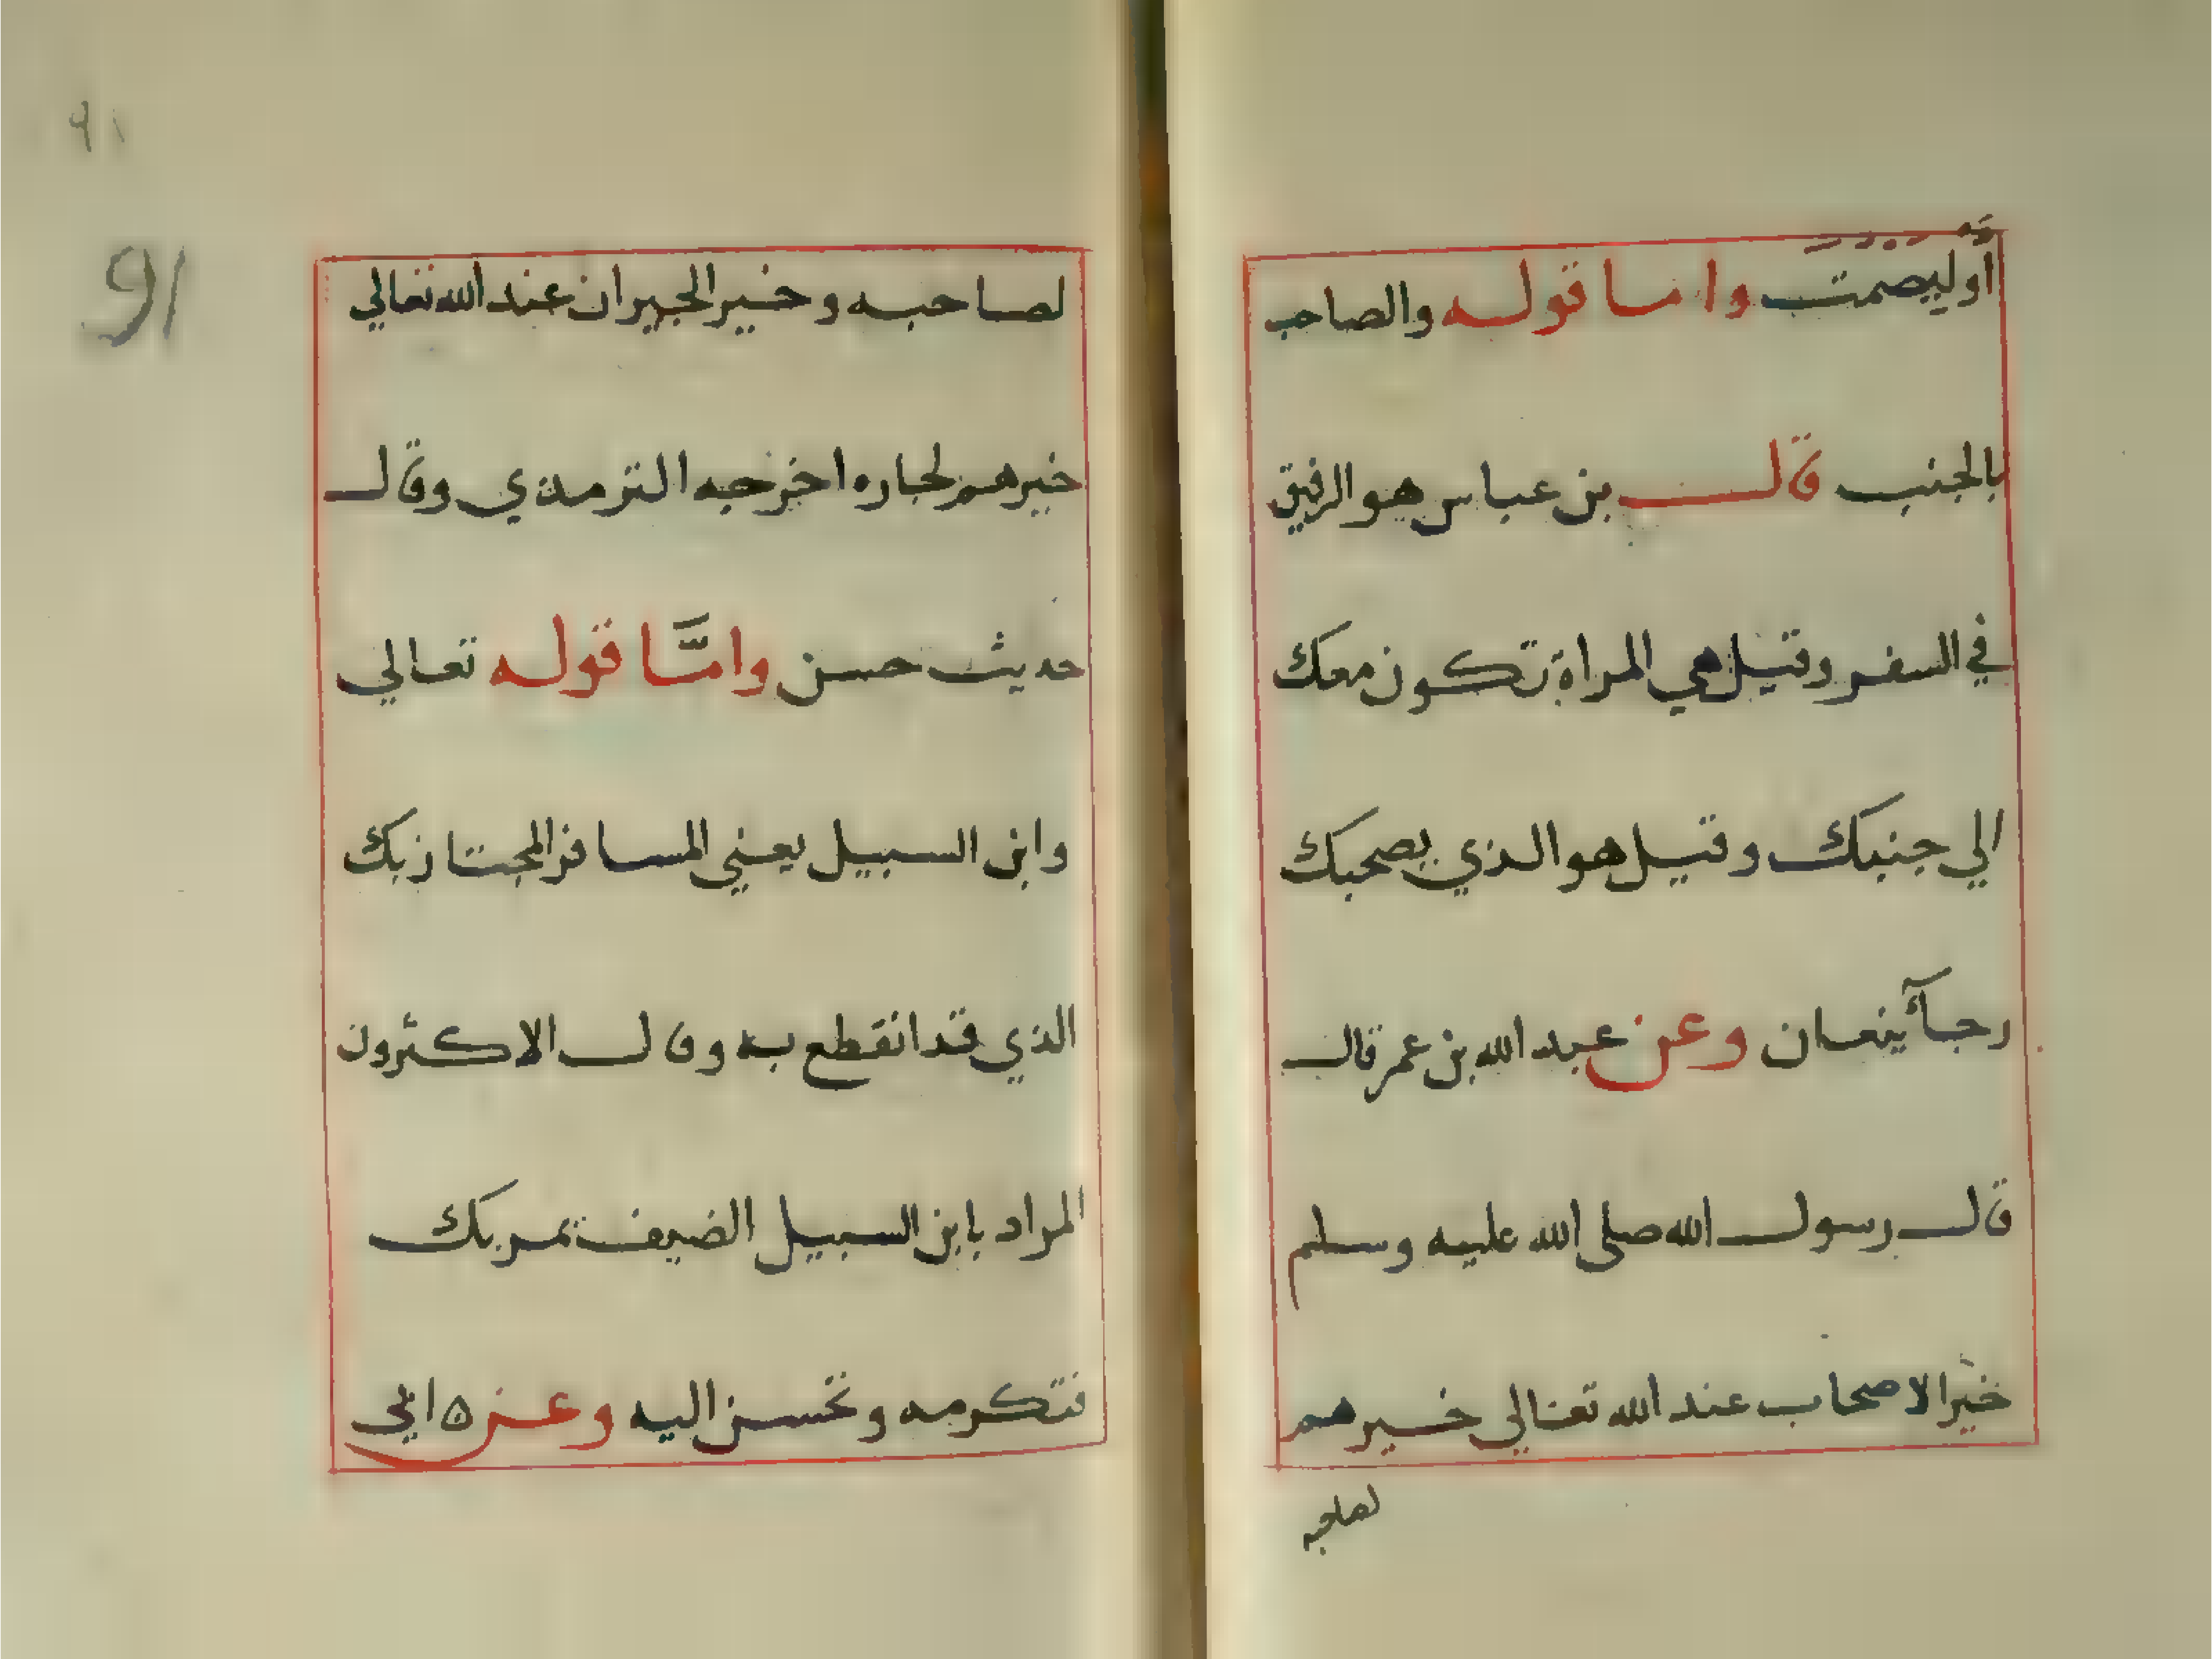 اوليصمت واما قوله والصاحب
بالجنب قال بن عباس هو الرفيق
في السفر وقيل هي المراة تكون معك
الي جنبك وقيل هو الذي يصحبك
رجآء ينعان وعن عبد الله بن عمر قال
قال رسول الله صلى الله عليه وسلم
خير الاصحاب عند الله تعالى خيرهم
لصاحبه
٩١
91
لصاحبه وخير الجيران عند الله تعالي
خيرهم لجاره اخرجه الترمذي وقال
حديث حسن وامَّا قوله تعالي
وابن السبيل يعني المسافر المجتاز بك
الذي قد انقطع به وقال الاكثرون
المراد بابن السبيل الضيف تمر بك
فتكرمه وتحسن اليه وعن ابي